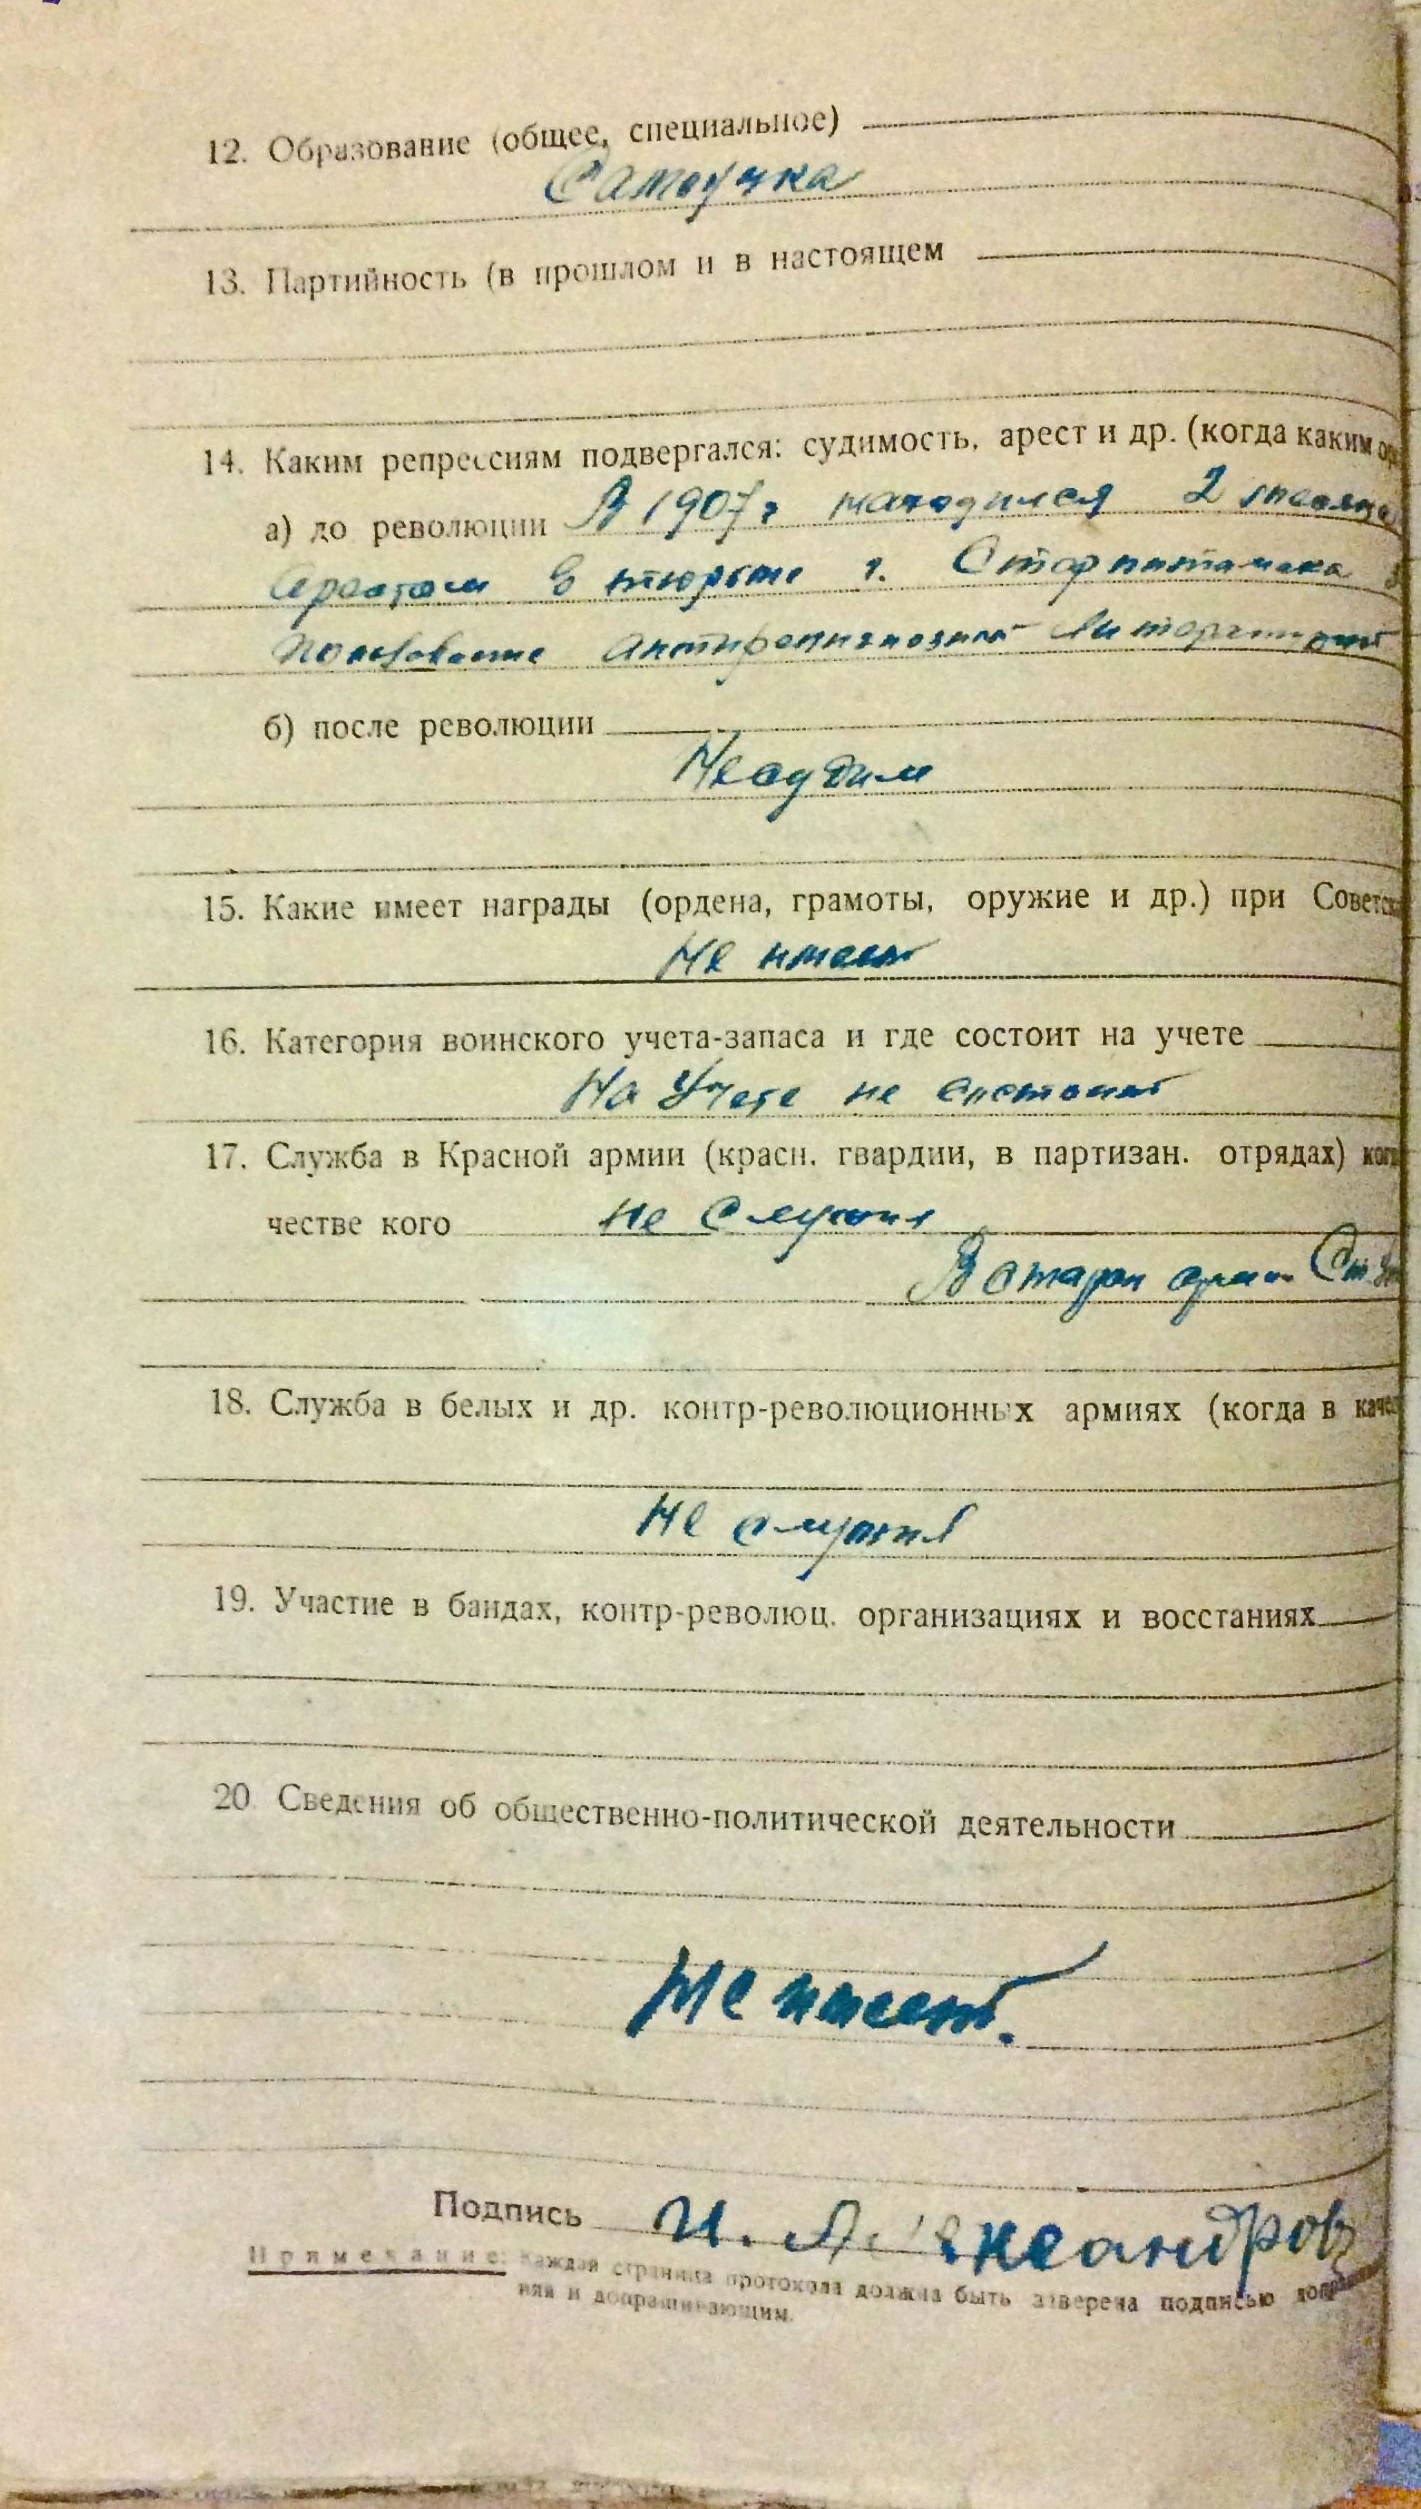 12. Образование (общее, специальное)
Самоучка
13. Партийность (в прошлом и в настоящем
14. Каким репрессиям подвергался: судимость, арест и др. (когда каким ор
а) до революции В 1907 г находился 2 месяца
Арестом в тюрьме г. Стерлитамака
пользование антирелигиозной литературой
б) после революции
Несудим
15. Какие имеет награды (ордена, грамоты, оружие и др.) при Советск
Не имеет
16. Категория воинского учета-запаса и где состоит на учете
На Учете не состоит
17. Служба в Красной армии (красн. гвардии, в партизан. отрядах) ког
честве кого не служил
В старой армии
18. Служба в белых и др. контр-революционных армиях (когда в качес
Не служил
19. Участие в бандах, контр-революц. организациях и восстаниях
20 Сведения об общественно-политической деятельности
Не имеет.
Подпись И. Александров
Примечание: Каждая страница протокола должна быть заверена подписью допраши
ния и допрашивающим.